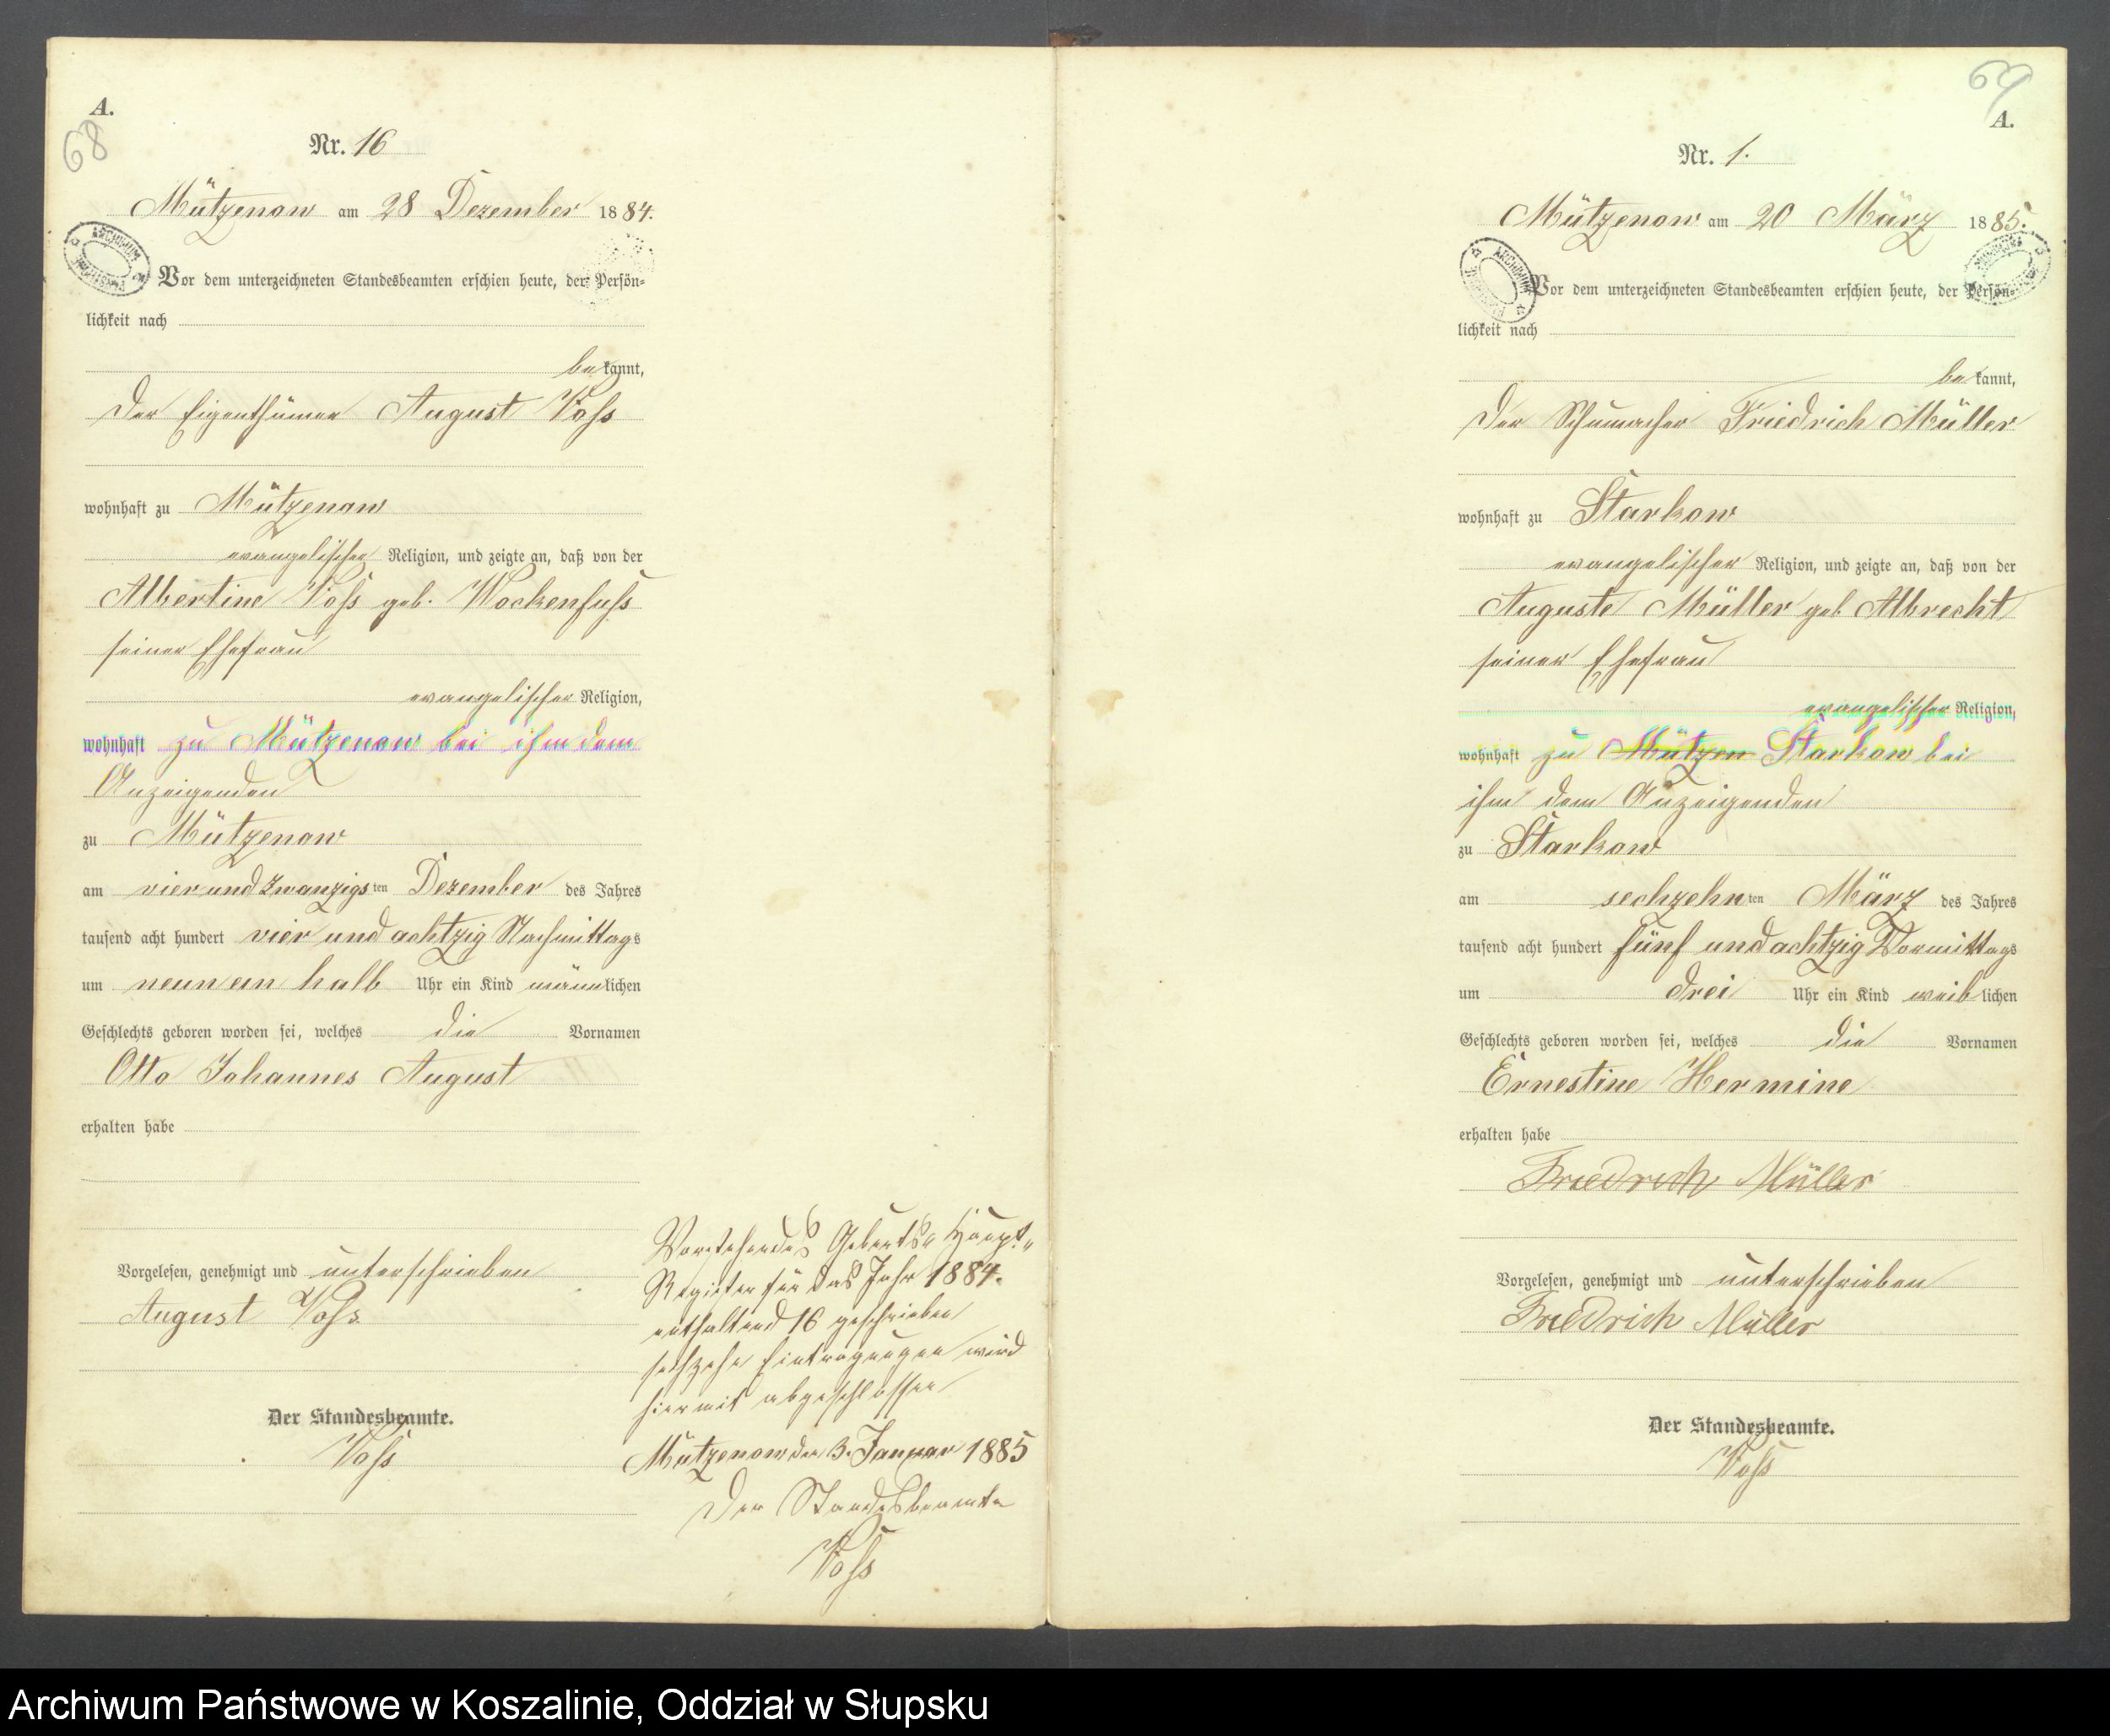 A.
68
Nr. 16
Mützenow am 28 Dezember 1884.
Vor dem unterzeichneten Standesbeamten erschien heute, der Persön-
lichkeit nach
bekannt,
der Eigenthümer August Voss
wohnhaft zu Mützenow
evangelischer Religion, und zeigte an, daß von der
Albertine Voss geb. Wockenfuss
seiner Ehefrau
evangelischer Religion,
wohnhaft zu Mützenow bei ihm dem
Anzeigenden
zu Mützenow
am vier und zwanzigsten Dezember des Jahres
tausend acht hundert vier und achtzig Nachmittags
um neun ein halb Uhr ein Kind männlichen
Geschlechts geboren worden sei, welches die Vornamen
Otto Johannes August
erhalten habe
Vorgelesen, genehmigt und unterschrieben
August Voss
Der Standesbeamte.
Voss
Vorstehendes Geburts- Haupt-
Register für das Jahr 1884.
enthaltend 16 geschrieben
sechzehn Eintragungen wird
hiermit abgeschlossen
Mützenow den 3. Januar 1885
Der Standesbeamte
Voss
69
A.
Nr. 1.
Mützenow am 20 März 1885.
Vor dem unterzeichneten Standesbeamten erschien heute, der Persön-
lichkeit nach
bekannt,
der Schumacher Friedrich Müller
wohnhaft zu Starkow
evangelischer Religion, und zeigte an, daß von der
Auguste Müller geb Albrecht
seiner Ehefrau
evangelischer Religion,
wohnhaft zu Mützen Starkow bei
ihm dem Anzeigenden
zu Starkow
am sechzehnten März des Jahres
tausend acht hundert fünf und achtzig Vormittags
um drei Uhr ein Kind weiblichen
Geschlechts geboren worden sei, welches die Vornamen
Ernestine Hermine
erhalten habe
Friedrich Müller
Vorgelesen, genehmigt und unterschrieben
Friedrich Müller
Der Standesbeamte.
Voss
Archiwum Państwowe w Koszalinie, Oddział w Słupsku